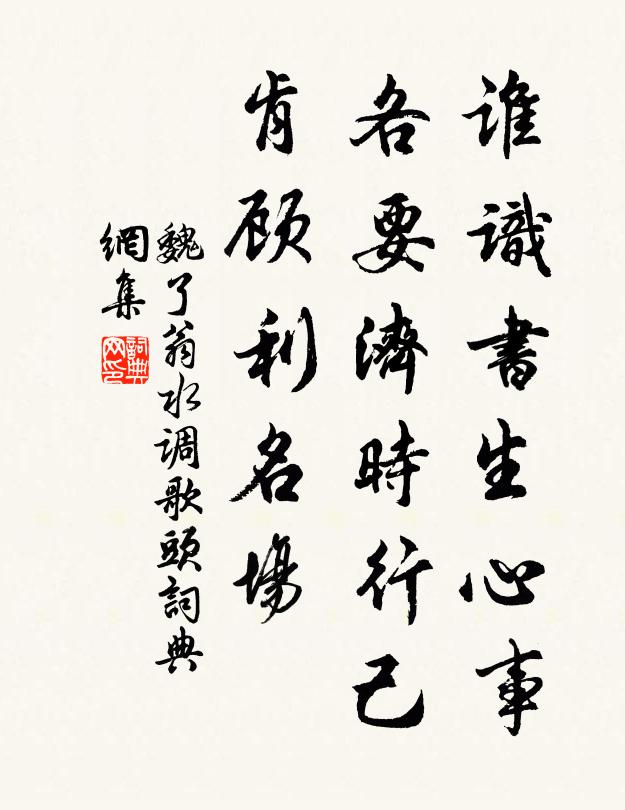 誰識書生心事
各要濟時行己
肯顾利名場
魏了翁水调歌頭詞典
網集
詞典网印